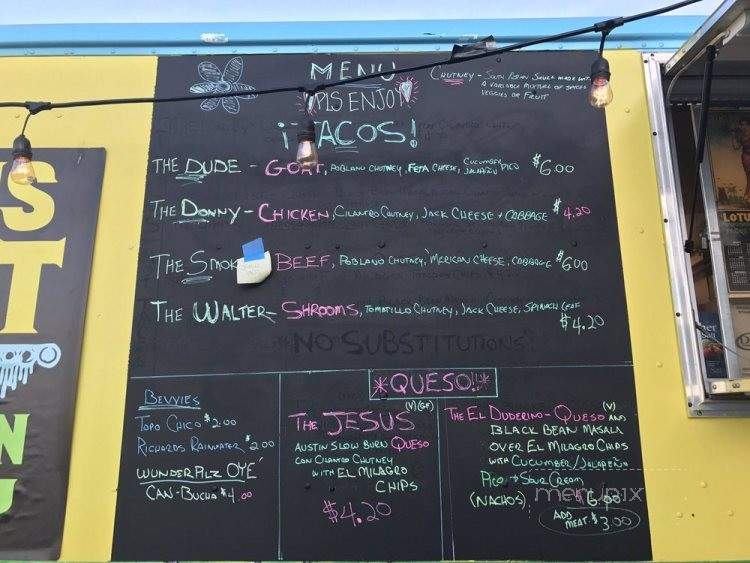 MENU
PLS ENJOY
¡TACOS!
CHUTNEY - SOUTH ASIAN SAUCE MADE WITH
A VARIABLE MIXTURE OF SPICES
VEGGIES OR FRUIT
THE DUDE - GOAT, POBLANO CHUTNEY, FETA CHEESE, CUCUMBER JALAPEÑO PICO $6.00
THE DONNY - CHICKEN, CILANTRO CHUTNEY, JACK CHEESE + CABBAGE $4.20
THE SMOK BEEF, POBLANO CHUTNEY, 'MERICAN CHEESE, CABBAGE $6.00
THE WALTER - SHROOMS, TOMATILLO CHUTNEY, JACK CHEESE, SPINACH
$4.20
*NO SUBSTITUTIONS*
*QUESO!!*
BEVVIES
TOPO CHICO $2.00
RICHARDS RAINWATER $2.00
WUNDERPILZ OYÉ
CAN-BUCHA $4.00
(V)(GF)
THE JESUS
AUSTIN SLOW BURN QUESO
CON CILANTRO CHUTNEY
WITH EL MILAGRO
CHIPS
$4.20
(V)
THE EL DUDERINO - QUESO AND
BLACK BEAN MASALA
OVER EL MILAGRO CHIPS
WITH CUCUMBER/JALAPEÑO
PICO + SOUR CREAM
(NACHOS) $6.00
ADD
MEAT $3.00
menupix
S
T
N
U
LOTU